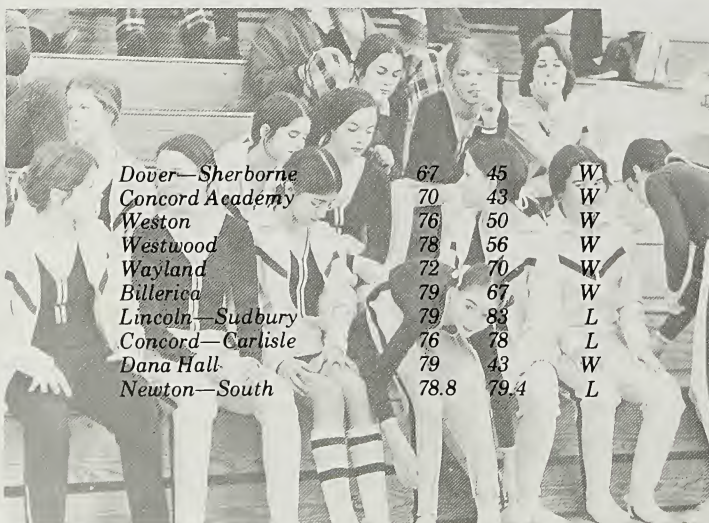 Dover—Sherborne 67 45 W
Concord Academy 70 43 W
Weston 76 50 W
Westwood 78 56 W
Wayland 72 70 W
Billerica 79 67 W
Lincoln—Sudbury 79 83 L
Concord—Carlisle 76 78 L
Dana Hall 79 43 W
Newton—South 78.8 79.4 L